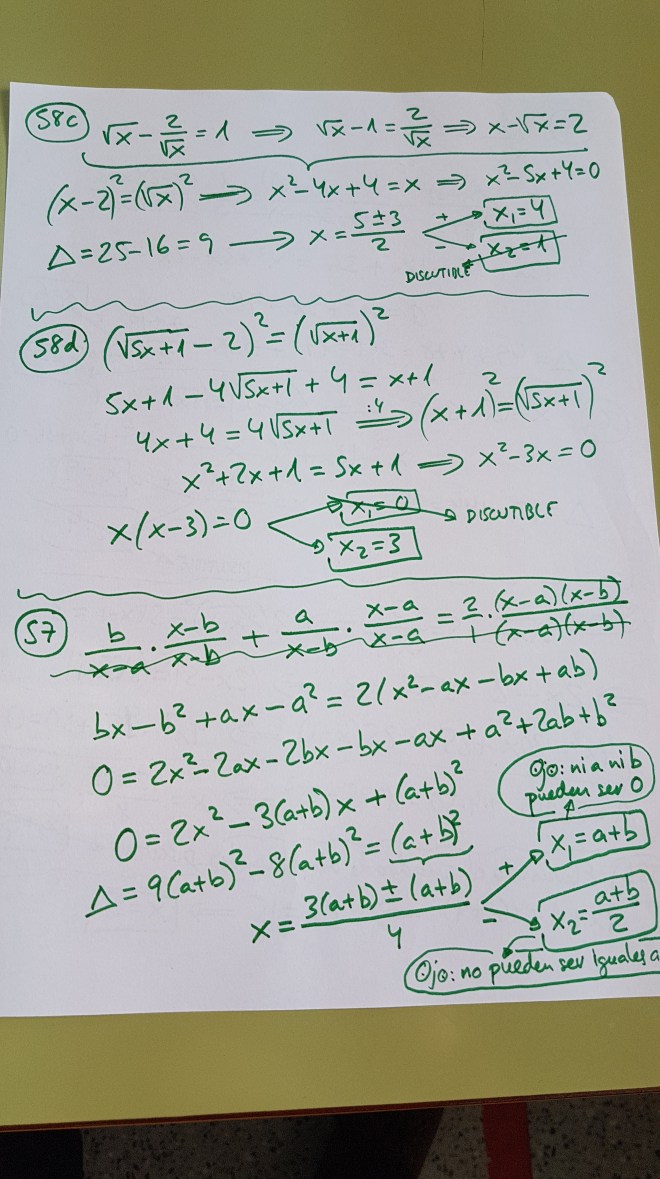 58c √x - 2/√x = 1 ⟹ √x - 1 = 2/√x ⟹ x - √x = 2
(x-2)² = (√x)² ⟶ x² - 4x + 4 = x ⟹ x² - 5x + 4 = 0
Δ = 25 - 16 = 9 ⟶ x = (5 ± 3)/2
+ x₁ = 4
- x₂ = 1
DISCUTIBLE
58d (√(5x+1) - 2)² = (√(x+1))²
5x + 1 - 4√(5x+1) + 4 = x + 1
4x + 4 = 4√(5x+1) :4 ⟹ (x+1)² = (√(5x+1))²
x² + 2x + 1 = 5x + 1 ⟹ x² - 3x = 0
x(x-3) = 0
x₁ = 0 → DISCUTIBLE
x₂ = 3
57 b/(x-a) · (x-b)/(x-b) + a/(x-b) · (x-a)/(x-a) = 2/1 · (x-a)(x-b)/(x-a)(x-b)
bx - b² + ax - a² = 2(x² - ax - bx + ab)
0 = 2x² - 2ax - 2bx - bx - ax + a² + 2ab + b²
Ojo: ni a ni b
pueden ser 0
0 = 2x² - 3(a+b)x + (a+b)²
Δ = 9(a+b)² - 8(a+b)² = (a+b)²
+ x₁ = a+b
x = (3(a+b) ± (a+b))/4
- x₂ = (a+b)/2
Ojo: no pueden ser iguales a